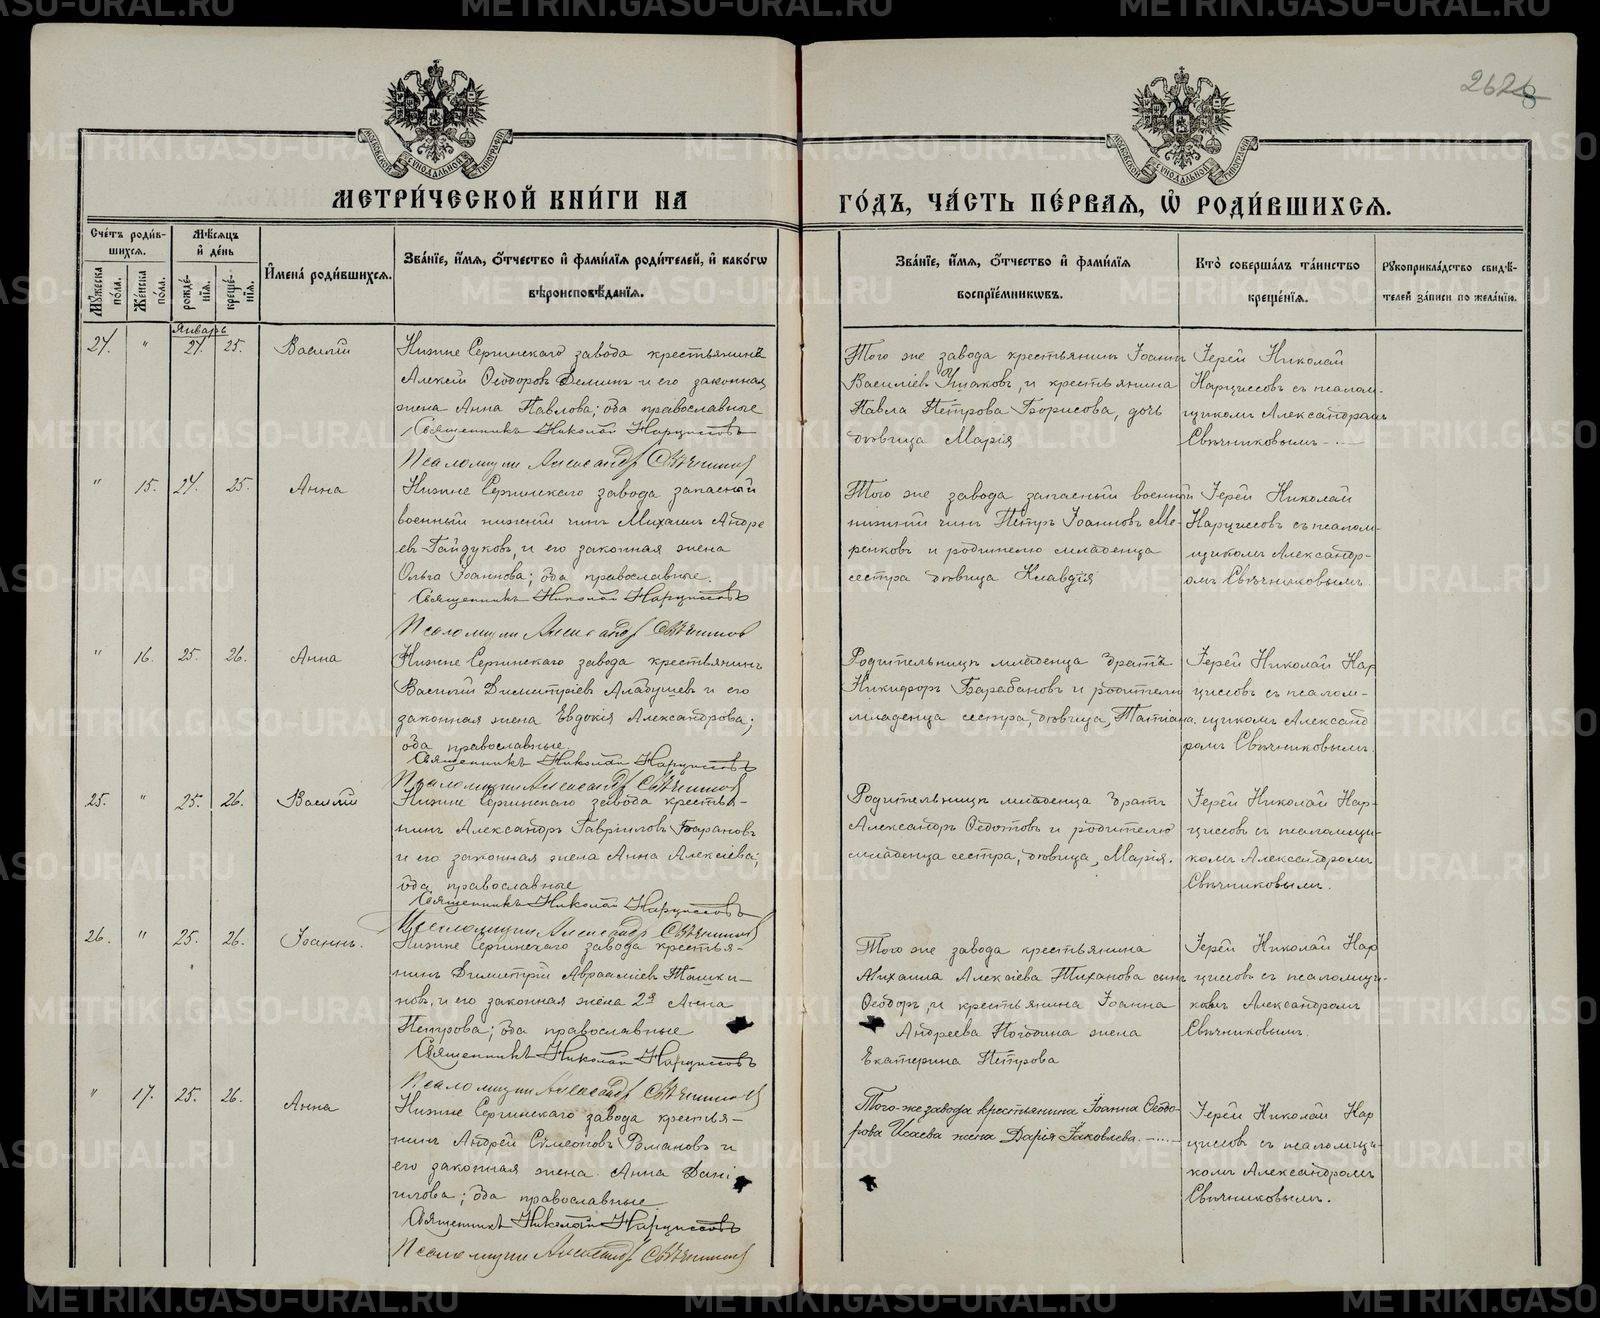 METRIKI.GASO-URAL.RU
2626
8
МОСКОВСКОЙ СУНОДАЛЬНОЙ ТИПОГРАФІИ
МОСКОВСКОЙ СУНОДАЛЬНОЙ ТИПОГРАФІИ
МЕТРИ́ЧЕСКОЙ КНИ́ГИ НА
ГО́ДЪ, ЧА́СТЬ ПЕ́РВАѦ, Ѡ҆ РОДИ́ВШИХСѦ.
Сче́тъ роди́в-
шихсѧ.
Мꙋ́жеска по́ла.
Же́нска по́ла.
Мѣ́сѧцъ
и҆ де́нь
рожде́-
нїѧ.
креще́-
нїѧ.
И҆мена̀ роди́вшихсѧ.
Зва́нїе, и҆́мѧ, ѻ҆́тчество и҆ фами́лїѧ роди́телей, и҆ како́гѡ
вѣроисповѣ́данїѧ.
Зва́нїе, и҆́мѧ, ѻ҆́тчество и҆ фами́лїѧ
воспрїе́мникѡвъ.
Кто̀ соверша́лъ та́инство
креще́нїѧ.
Рꙋкоприкла́дство свидѣ́-
телей за́писи по жела́нїю.
Январь
24. " 21. 25. Василій
Нижне Сергинскаго завода крестьянинъ
Алексѣй Ѳеодоровъ Деминъ и его законная
жена Анна Павлова; оба православные
Священникъ Николай Нарциссовъ
Псаломщик Александр Свѣчников
Того же завода крестьянин Іоаннъ
Василіев Ушаков, и крестьянина
Павла Петрова Борисова, дочь
дѣвица Марія
Іерей Николай
Нарциссовъ съ псалом-
щиком Александромъ
Свѣчниковымъ
" 15. 24. 25. Анна
Нижне Сергинскаго завода запасный
военный нижній чинъ Михаилъ Андре
евъ Гайдуковъ, и его законная жена
Ольга Іоаннова; оба православные.
Священникъ Николай Нарциссовъ
Псаломщик Александр Свѣчников
Того же завода запасный военный
нижній чинъ Петръ Іоанновъ Ме-
ренковъ и родителю младенца
сестра дѣвица Клавдія
Іерей Николай
Нарциссовъ съ псалом-
щиком Александр-
омъ Свѣчниковымъ.
" 16. 25. 26. Анна
Нижне Сергинскаго завода крестьянинъ
Василій Димитріевъ Алабушевъ и его
законная жена Евдокія Александрова;
оба православные.
Священникъ Николай Нарциссовъ
Псаломщик Александр Свѣчников
Родительницѣ младенца братъ
Никифоръ Барабановъ и родителю
младенца сестра, дѣвица, Татіана.
Іерей Николай Нар
циссовъ съ псалом-
щиком Александ
ромъ Свѣчниковымъ.
25. " 25. 26. Василій
Нижне Сергинскаго завода крестья-
нинъ Александръ Гавріиловъ Барановъ
и его законная жена Анна Алексіева;
оба православные
Священникъ Николай Нарциссовъ
Псаломщик Александр Свѣчников
Родительницѣ младенца братъ
Александръ Ѳедотовъ и родителю
младенца сестра, дѣвица, Марія.
Іерей Николай Нар-
циссовъ съ псаломщи-
комъ Александромъ
Свѣчниковымъ.
26. " 25. 26. Іоаннъ.
Нижне Сергинскаго завода крестья-
нинъ Димитрій Авраміевъ Ташки-
новъ, и его законная жена 2я Анна
Петрова; оба православные
Священникъ Николай Нарциссовъ
Псаломщик Александр Свѣчников
Того же завода крестьянина
Михаила Алексіева Тиханова сынъ
Ѳеодоръ, и крестьянина Іоанна
Андреева Погодина жена
Екатерина Петрова
Іерей Николай Нар
циссовъ съ псаломщи-
комъ Александромъ
Свѣчниковымъ.
" 17. 25. 26. Анна
Нижне Сергинскаго завода крестья-
нинъ Андрей Симеоновъ Романовъ и
его законная жена Анна Дані
илова; оба православные
Священникъ Николай Нарциссовъ
Псаломщик Александр Свѣчников
Того-же завода крестьянина Іоанна Ѳеодо-
рова Исаева жена Дарія Іаковлева.
Іерей Николай Нар
циссовъ съ псаломщи-
комъ Александромъ
Свѣчниковымъ.